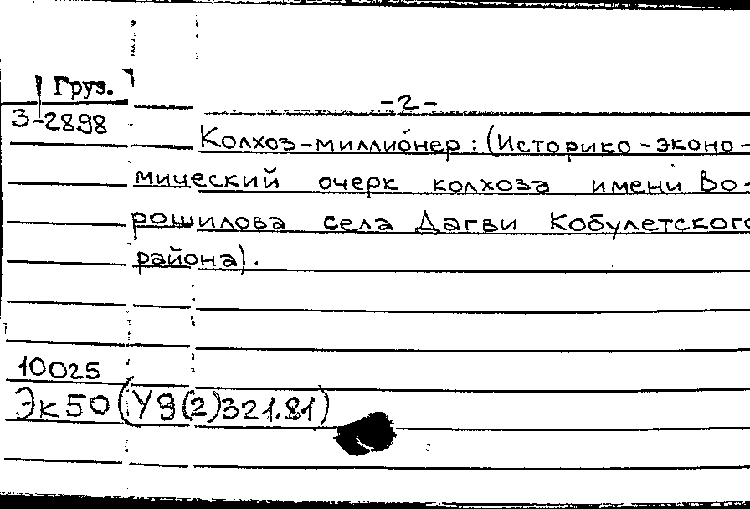 Груз.
-2-
3-2898
Колхоз-миллионер: (Историко-эконо-
мический очерк колхоза имени Во-
рошилова села Дагви Кобулетского
района).
10025
Эк50(У9(2)321.81)